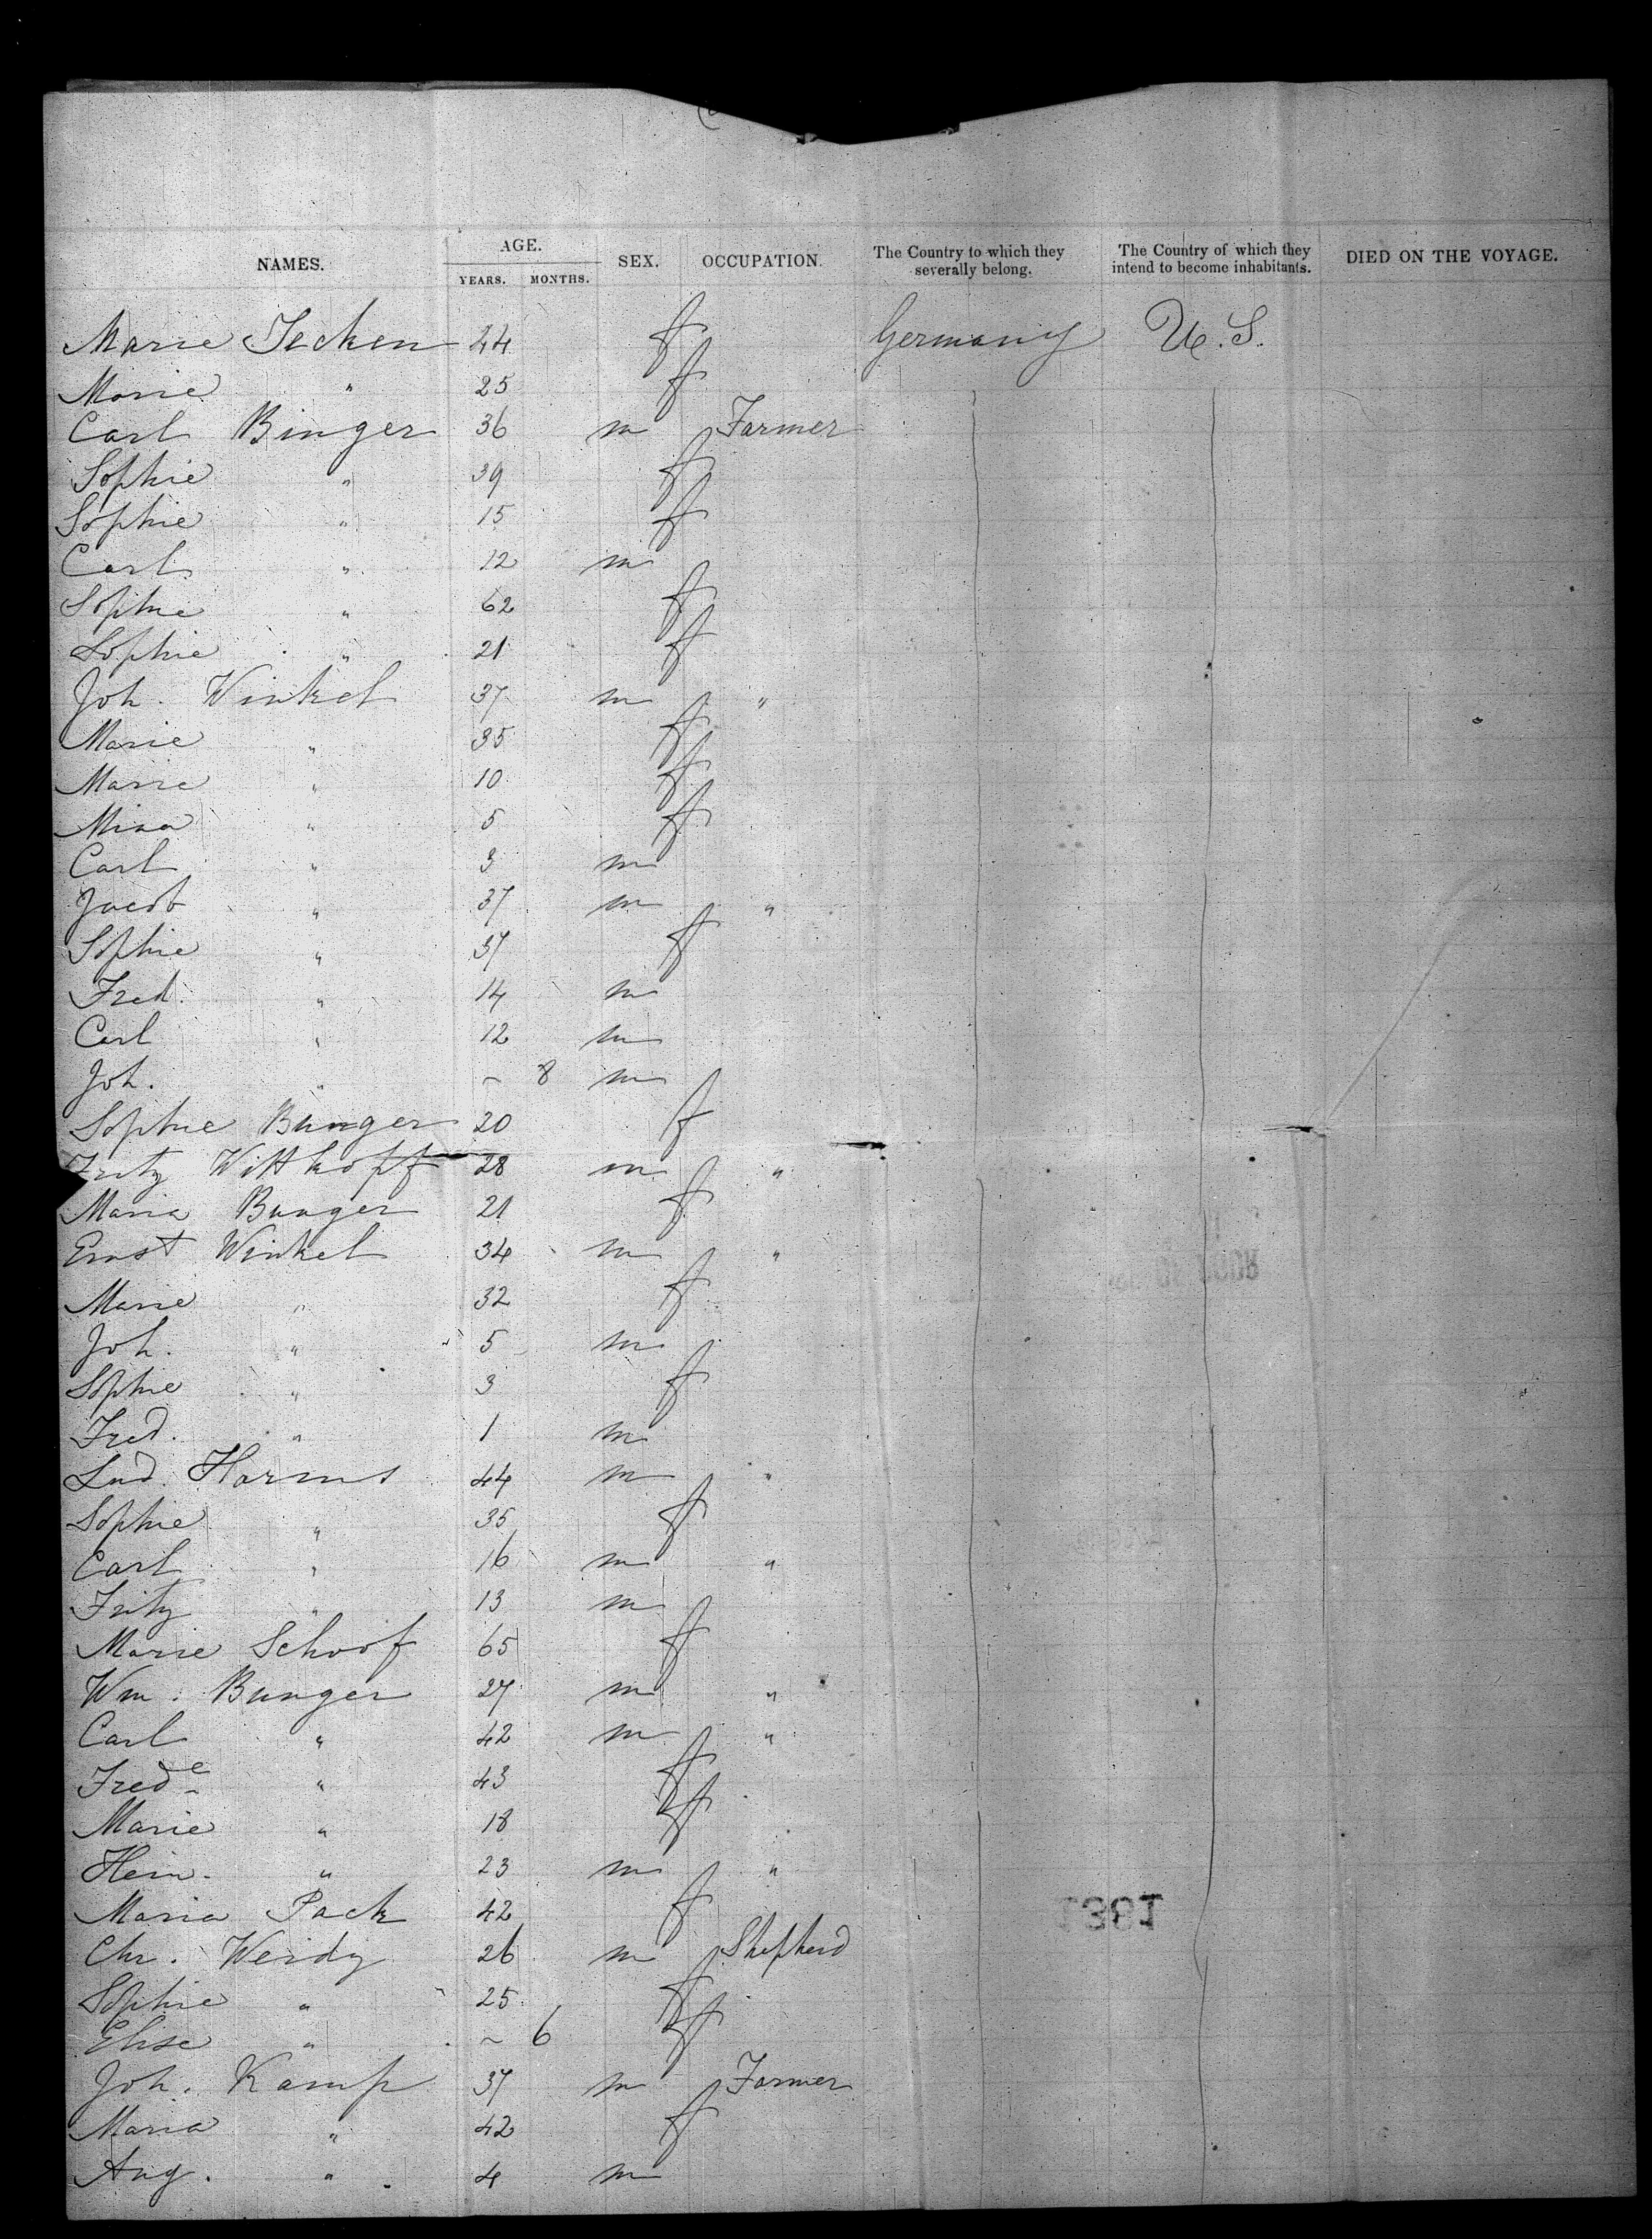 NAMES. AGE. YEARS. MONTHS. SEX. OCCUPATION. The Country to which they severally belong. The Country of which they intend to become inhabitants. DIED ON THE VOYAGE.
Marie Tecken 24 f Germany U.S.
Marie " 25 f
Carl Binger 36 m Farmer
Sophie " 39 f
Sophie " 15 f
Carl " 12 m
Sophie " 62 f
Sophie " 21 f
Joh. Winkel 37 m "
Marie " 35 f
Marie " 10 f
Mina " 5 f
Carl " 3 m
Jacob " 37 m "
Sophie " 37 f
Fred. " 14 m
Carl " 12 m
Joh. " ~ 8 m
Sophie Bunger 20 f
Fritz Witthoff 28 m "
Maria Bunger 21 f
Ernst Winkel 34 m "
Marie " 32 f
Joh. " 5 m
Sophie " 3 f
Fred. " 1 m
Lud. Harms 44 m "
Sophie " 35 f
Carl " 16 m "
Fritz " 13 m
Marie Schoof 65 f
Wm. Bunger 27 m "
Carl " 42 m "
Frede " 43 f
Marie " 18 f
Hein. " 23 m "
Maria Pack 42 f
Chr. Weidy 26 m Shepherd
Sophie " 25 f
Elise " ~ 6 f
Joh. Kamp 37 m Farmer
Maria " 42 f
Aug. " 4 m